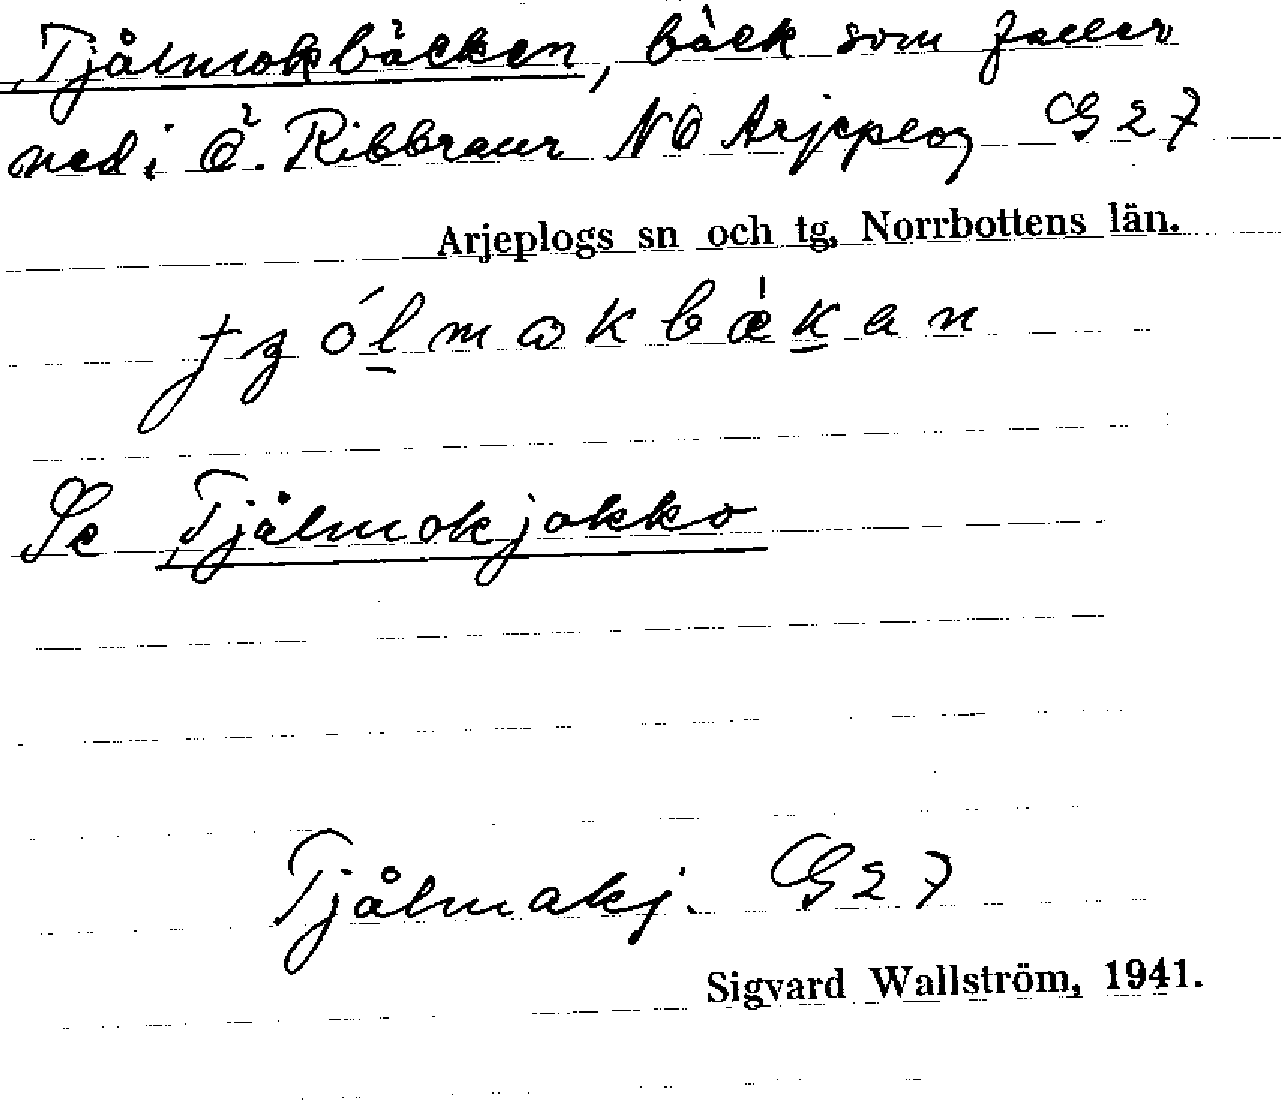 Tjålmokbäcken, bäck som faller
ned i Ö. Ribbraur NO Arjeplog G 27
Arjeplogs sn och tg, Norrbottens län.
Se Tjålmokjokko
Tjålmakj. G 27
Sigvard Wallström, 1941.